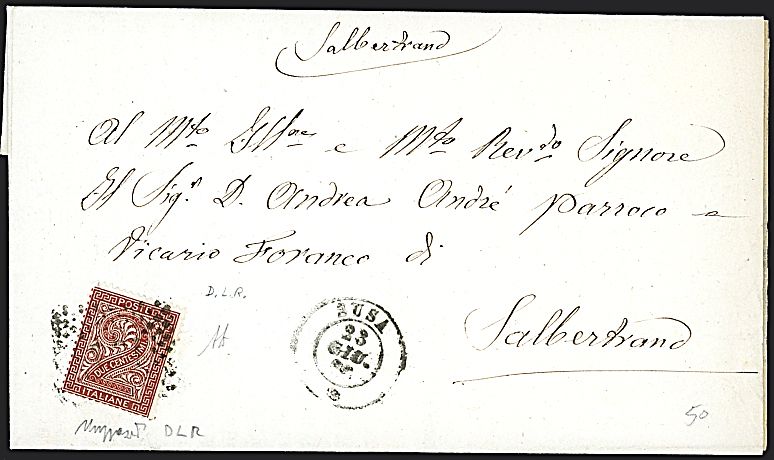 Salbertrand
Al M.to Ill.re e M.to Rev.do Signore
Il Sig.r D. Andrea André Parroco e
Vicario Foraneo di
Salbertrand
D.L.R.
POSTE
DUE CENTESIMI
2
ITALIANE
SUSA
23
GIU.
DLR
50